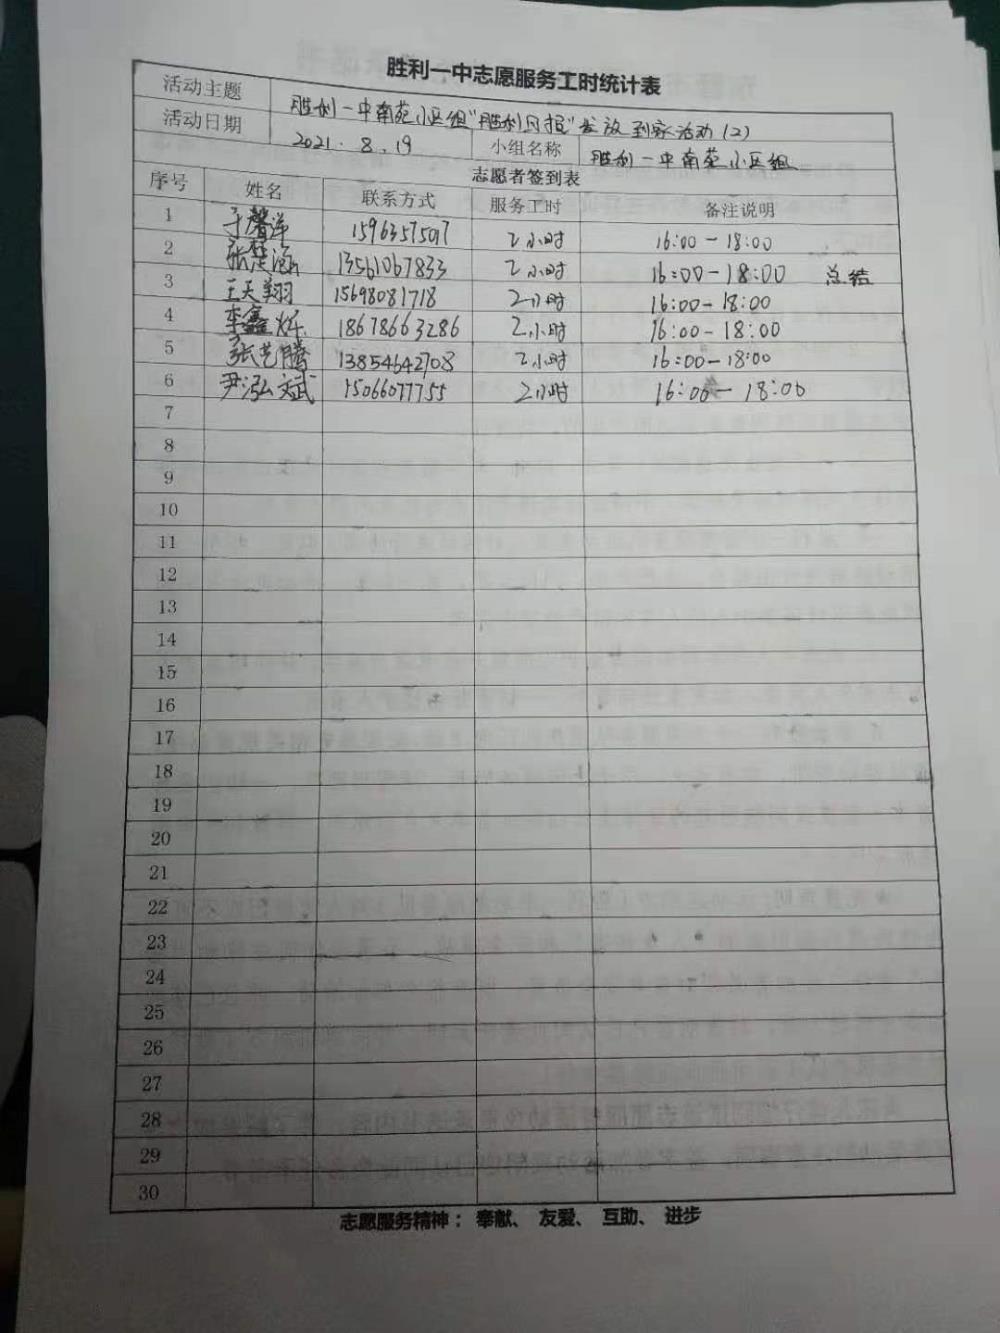 胜利一中志愿服务工时统计表
活动主题 胜利一中南苑小区组"胜利日报"发放到家活动(2)
活动日期 2021.8.19 小组名称 胜利一中南苑小区组
志愿者签到表
序号 姓名 联系方式 服务工时 备注说明
1 于馨洋 1596357507 2小时 16:00-18:00
2 张楚涵 13561067833 2小时 16:00-18:00 总结
3 王天翔 15698081718 2小时 16:00-18:00
4 李鑫烁 18678663286 2小时 16:00-18:00
5 张艺腾 13854642708 2小时 16:00-18:00
6 尹泓文武 15066077755 2小时 16:00-18:00
7
8
9
10
11
12
13
14
15
16
17
18
19
20
21
22
23
24
25
26
27
28
29
30
志愿服务精神：奉献、友爱、互助、进步